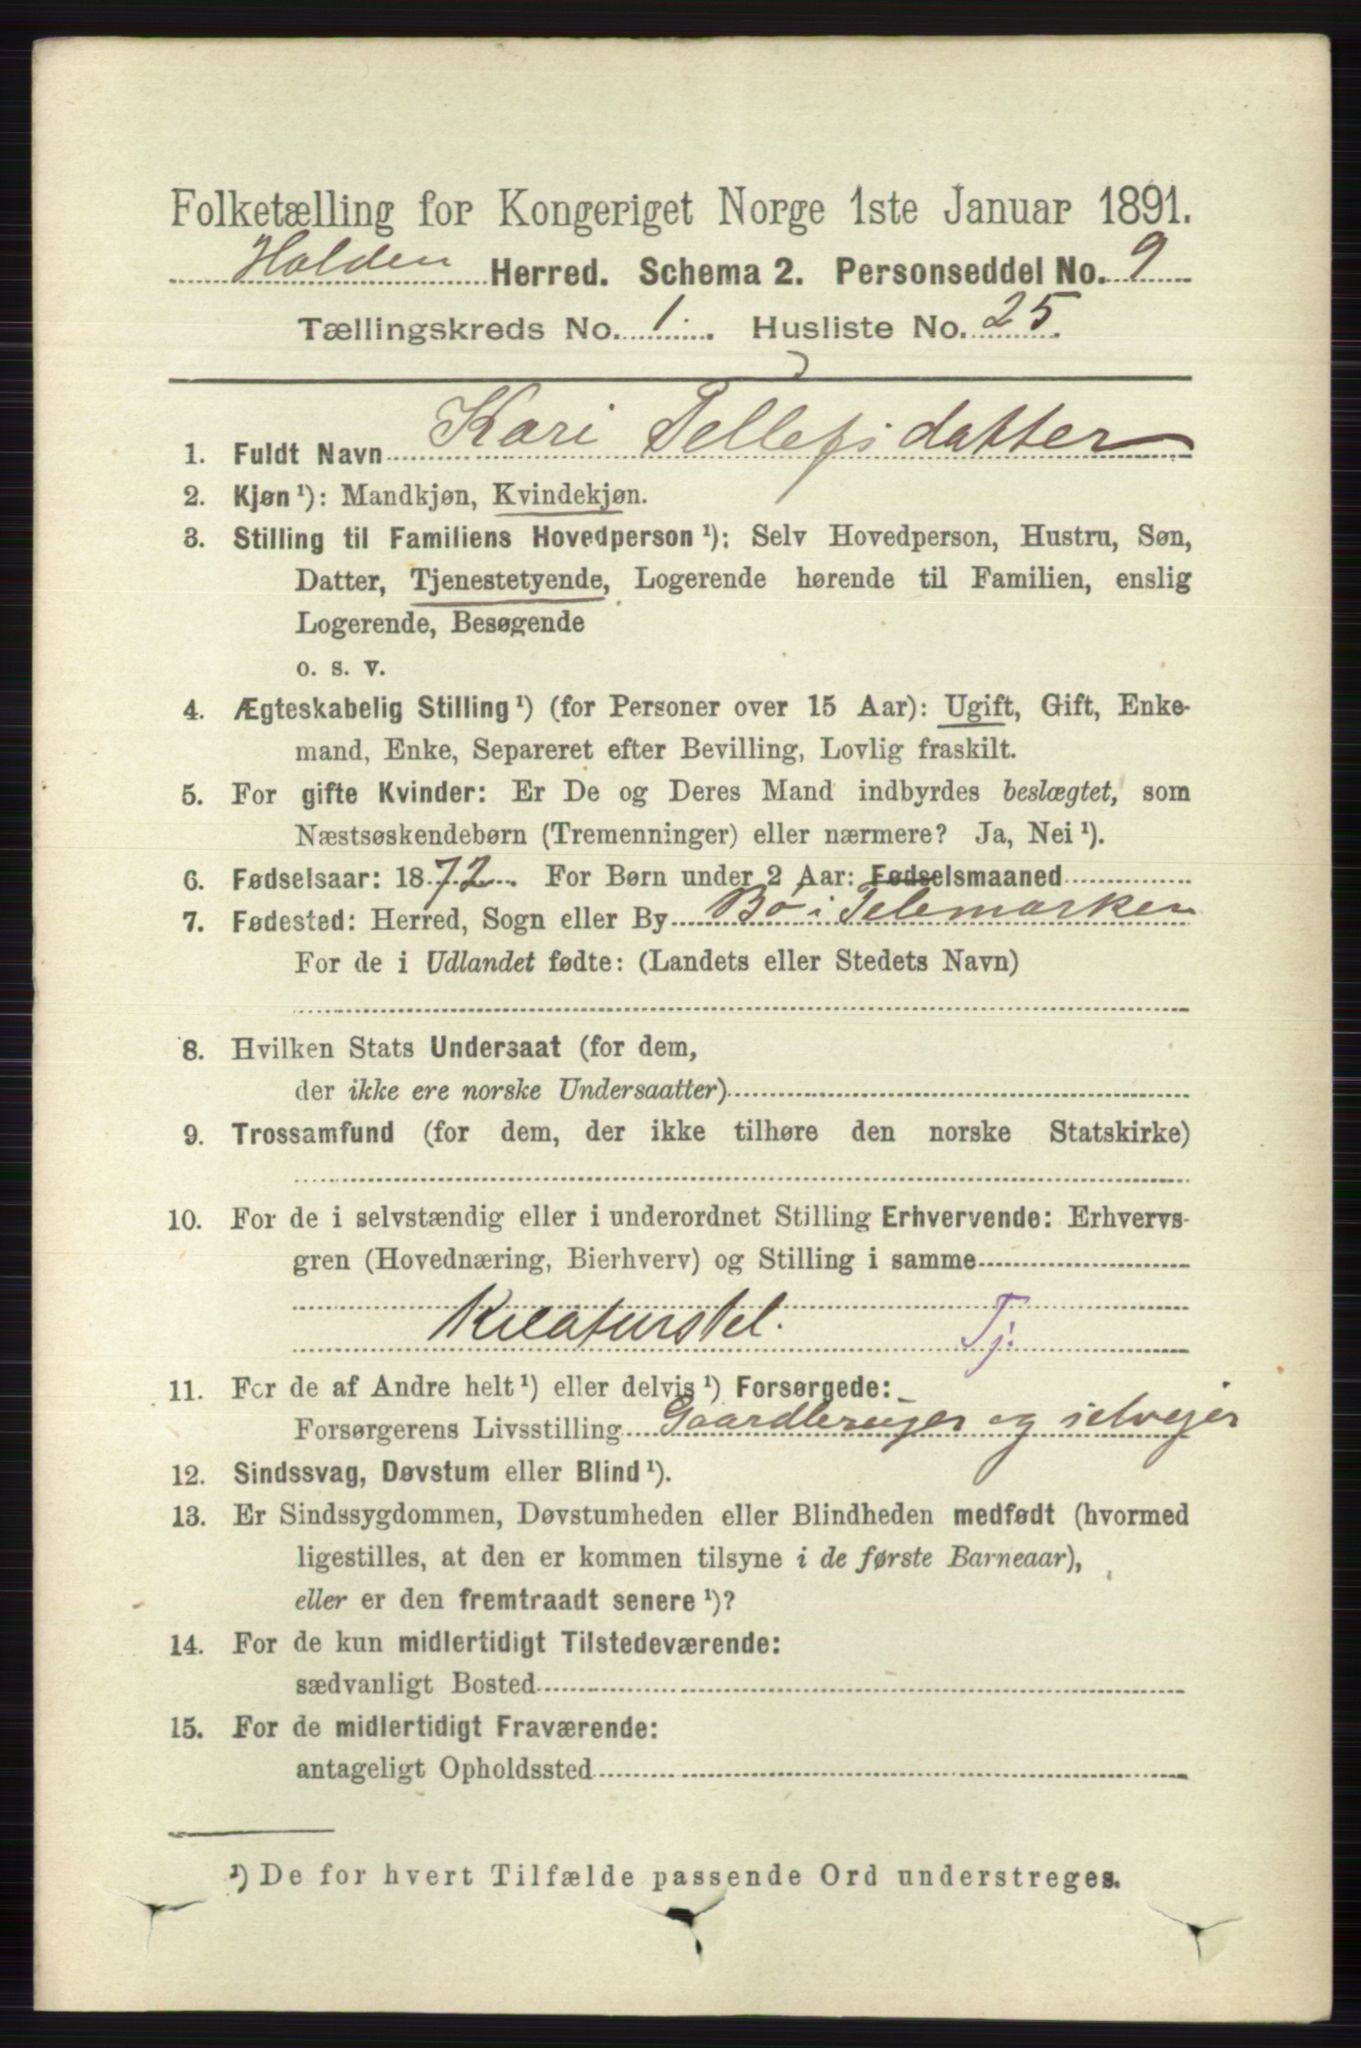 Folketælling for Kongeriget Norge 1ste Januar 1891.
Holden Herred. Schema 2. Personseddel No. 9
Tællingskreds No. 1. Husliste No. 25
1. Fuldt Navn Kari Tellefsdatter
2. Kjøn ¹): Mandkjøn, Kvindekjøn.
3. Stilling til Familiens Hovedperson ¹): Selv Hovedperson, Hustru, Søn,
Datter, Tjenestetyende, Logerende hørende til Familien, enslig
Logerende, Besøgende
o. s. v.
4. Ægteskabelig Stilling ¹) (for Personer over 15 Aar): Ugift, Gift, Enke-
mand, Enke, Separeret efter Bevilling, Lovlig fraskilt.
5. For gifte Kvinder: Er De og Deres Mand indbyrdes beslægtet, som
Næstsøskendebørn (Tremenninger) eller nærmere? Ja, Nei ¹).
6. Fødselsaar: 1872. For Børn under 2 Aar: Fødselsmaaned
7. Fødested: Herred, Sogn eller By Bø i Telemarken
For de i Udlandet fødte: (Landets eller Stedets Navn)
8. Hvilken Stats Undersaat (for dem,
der ikke ere norske Undersaatter)
9. Trossamfund (for dem, der ikke tilhøre den norske Statskirke)
10. For de i selvstændig eller i underordnet Stilling Erhvervende: Erhvervs-
gren (Hovednæring, Bierhverv) og Stilling i samme
Kreaturstel. Tj.
11. For de af Andre helt ¹) eller delvis ¹) Forsørgede:
Forsørgerens Livsstilling Gaardbruger og selvejer
12. Sindssvag, Døvstum eller Blind ¹).
13. Er Sindssygdommen, Døvstumheden eller Blindheden medfødt (hvormed
ligestilles, at den er kommen tilsyne i de første Barneaar),
eller er den fremtraadt senere ¹)?
14. For de kun midlertidigt Tilstedeværende:
sædvanligt Bosted
15. For de midlertidigt Fraværende:
antageligt Opholdssted
¹) De for hvert Tilfælde passende Ord understreges.